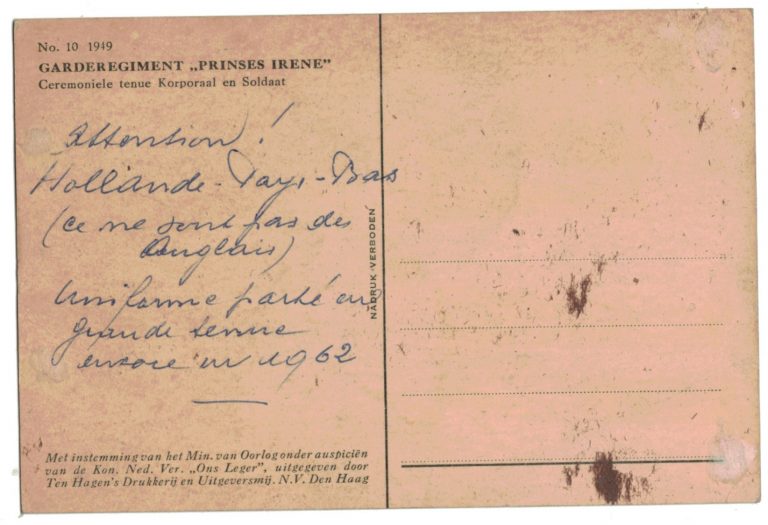 No. 10 1949
GARDEREGIMENT „PRINSES IRENE"
Ceremoniele tenue Korporaal en Soldaat
Attention !
Hollande - Pays-Bas
(ce ne sont pas des
Anglais)
Uniforme porté en
grande tenue
encore en 1962
NADRUK VERBODEN
Met instemming van het Min. van Oorlog onder auspiciën
van de Kon. Ned. Ver. „Ons Leger", uitgegeven door
Ten Hagen's Drukkerij en Uitgeversmij. N.V. Den Haag